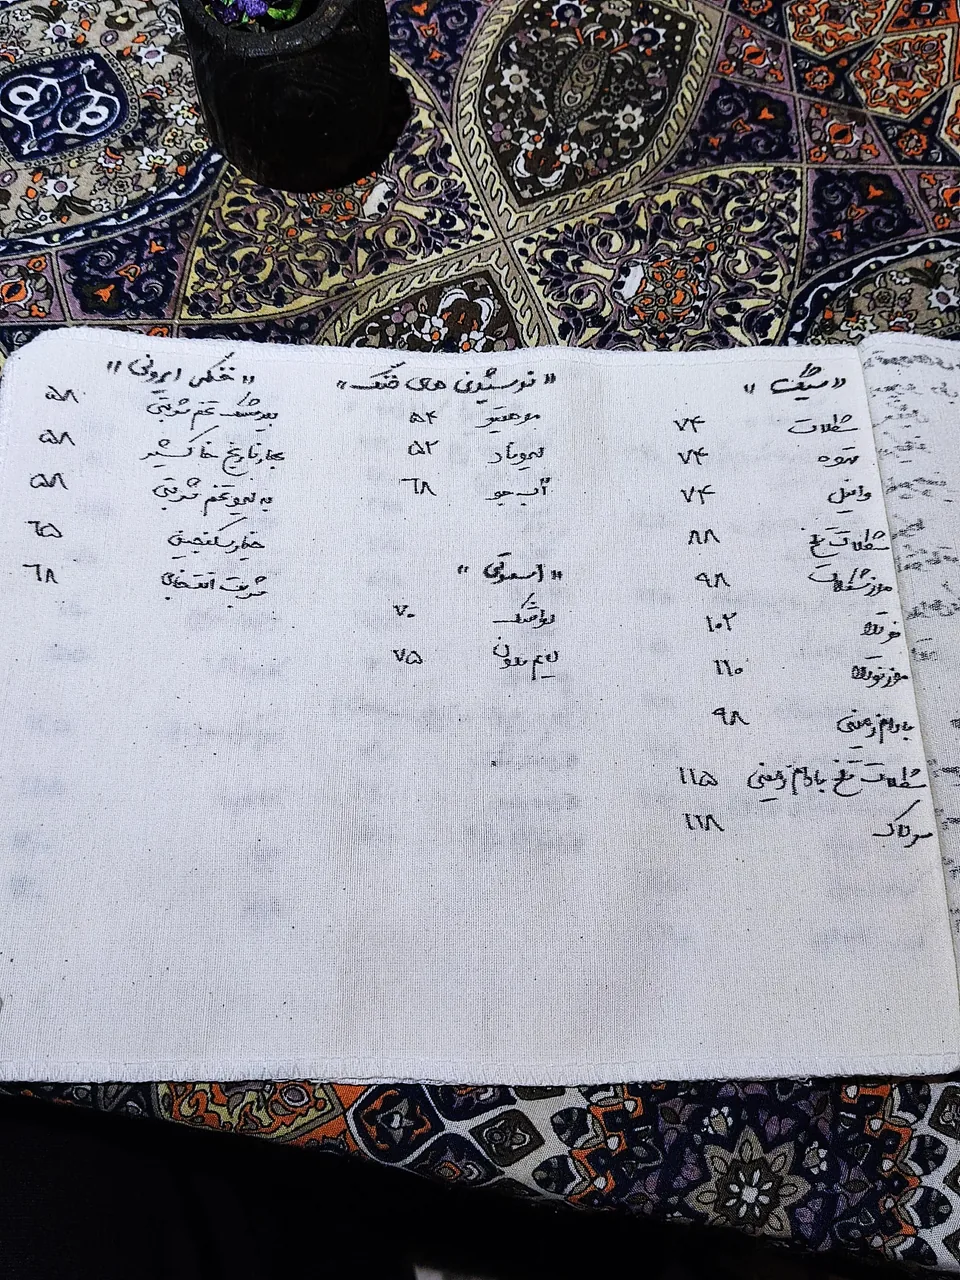 "شیک"
شکلات ۷۴
قهوه ۷۴
وانیل ۷۴
شکلات تلخ ۸۸
موز شکلات ۹۸
نوتلا ۱۰۲
موز نوتلا ۱۱۰
بادام زمینی ۹۸
شکلات تلخ بادام زمینی ۱۱۵
سرلاک ۱۱۸
"نوشیدنی های خنک"
موهیتو ۵۴
لیموناد ۵۲
آب جو ۶۸
"اسموتی"
لواشک ۷۰
"خنکی ایرونی"
بیدمشک تخم شربتی ۵۸
بهارنارنج خاکشیر ۵۸
به لیمو تخم شربتی ۵۸
خیار سکنجبین ۶۵
شربت انتخابی ۶۸